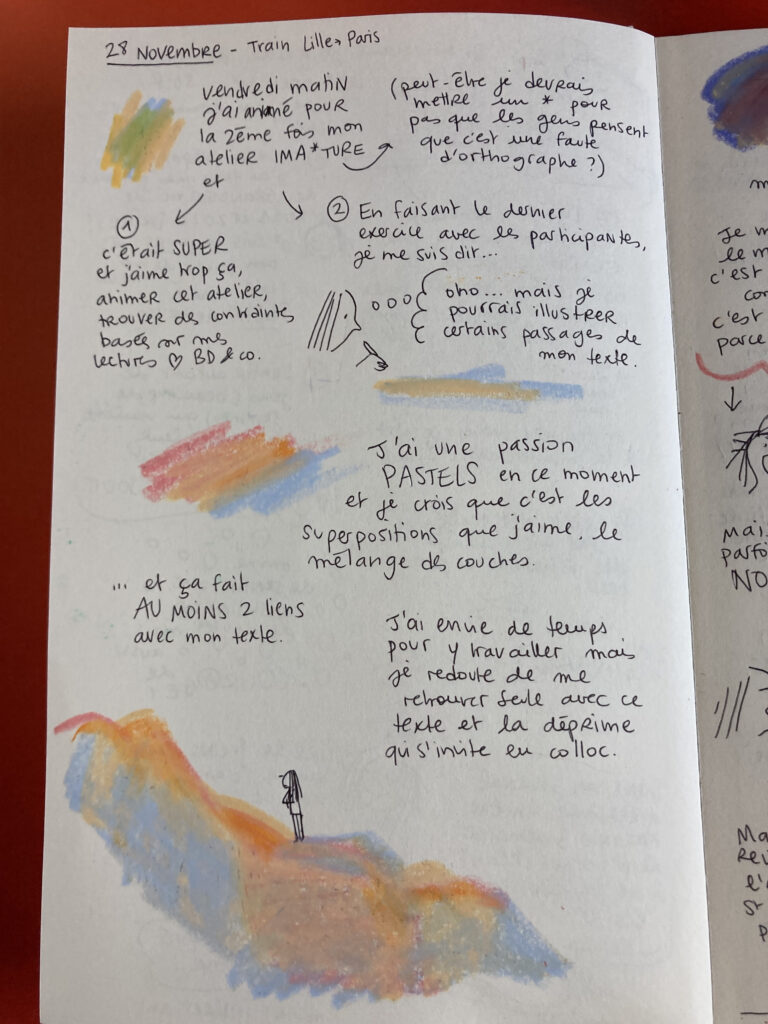 28 Novembre - Train Lille → Paris
vendredi matin
j'ai animé pour
la 2ème fois mon
atelier IMA*TURE
et
(peut-être je devrais
mettre un * pour
pas que les gens pensent
que c'est une faute
d'orthographe ?)
①
c'était SUPER
et j'aime trop ça,
animer cet atelier,
trouver des contraintes
basées sur mes
lectures ♡ BD & co.
② En faisant le dernier
exercice avec les participantes,
je me suis dit...
oho... mais je
pourrais illustrer
certains passages de
mon texte.
J'ai une passion
PASTELS en ce moment
et je crois que c'est les
superpositions que j'aime, le
mélange des couches.
... et ça fait
AU MOINS 2 liens
avec mon texte.
J'ai envie de temps
pour y travailler mais
je redoute de me
retrouver seule avec ce
texte et la déprime
qui s'invite en colloc.
Je m
le m
c'est
con
c'est
parce
Mais
parfo
NO
Ma
Rev
l'a
st
p